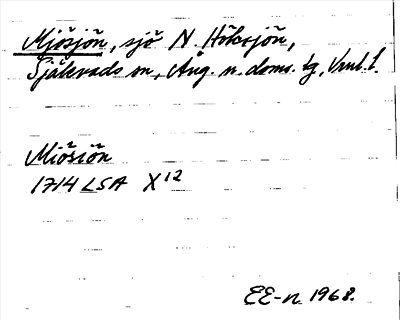 Mjösjön, sjö N. Höksjön,
Själevads sn, Ång. n. doms. tg, Vnl. l.
Miösiön
1714 LSA X12
EE-n 1968.